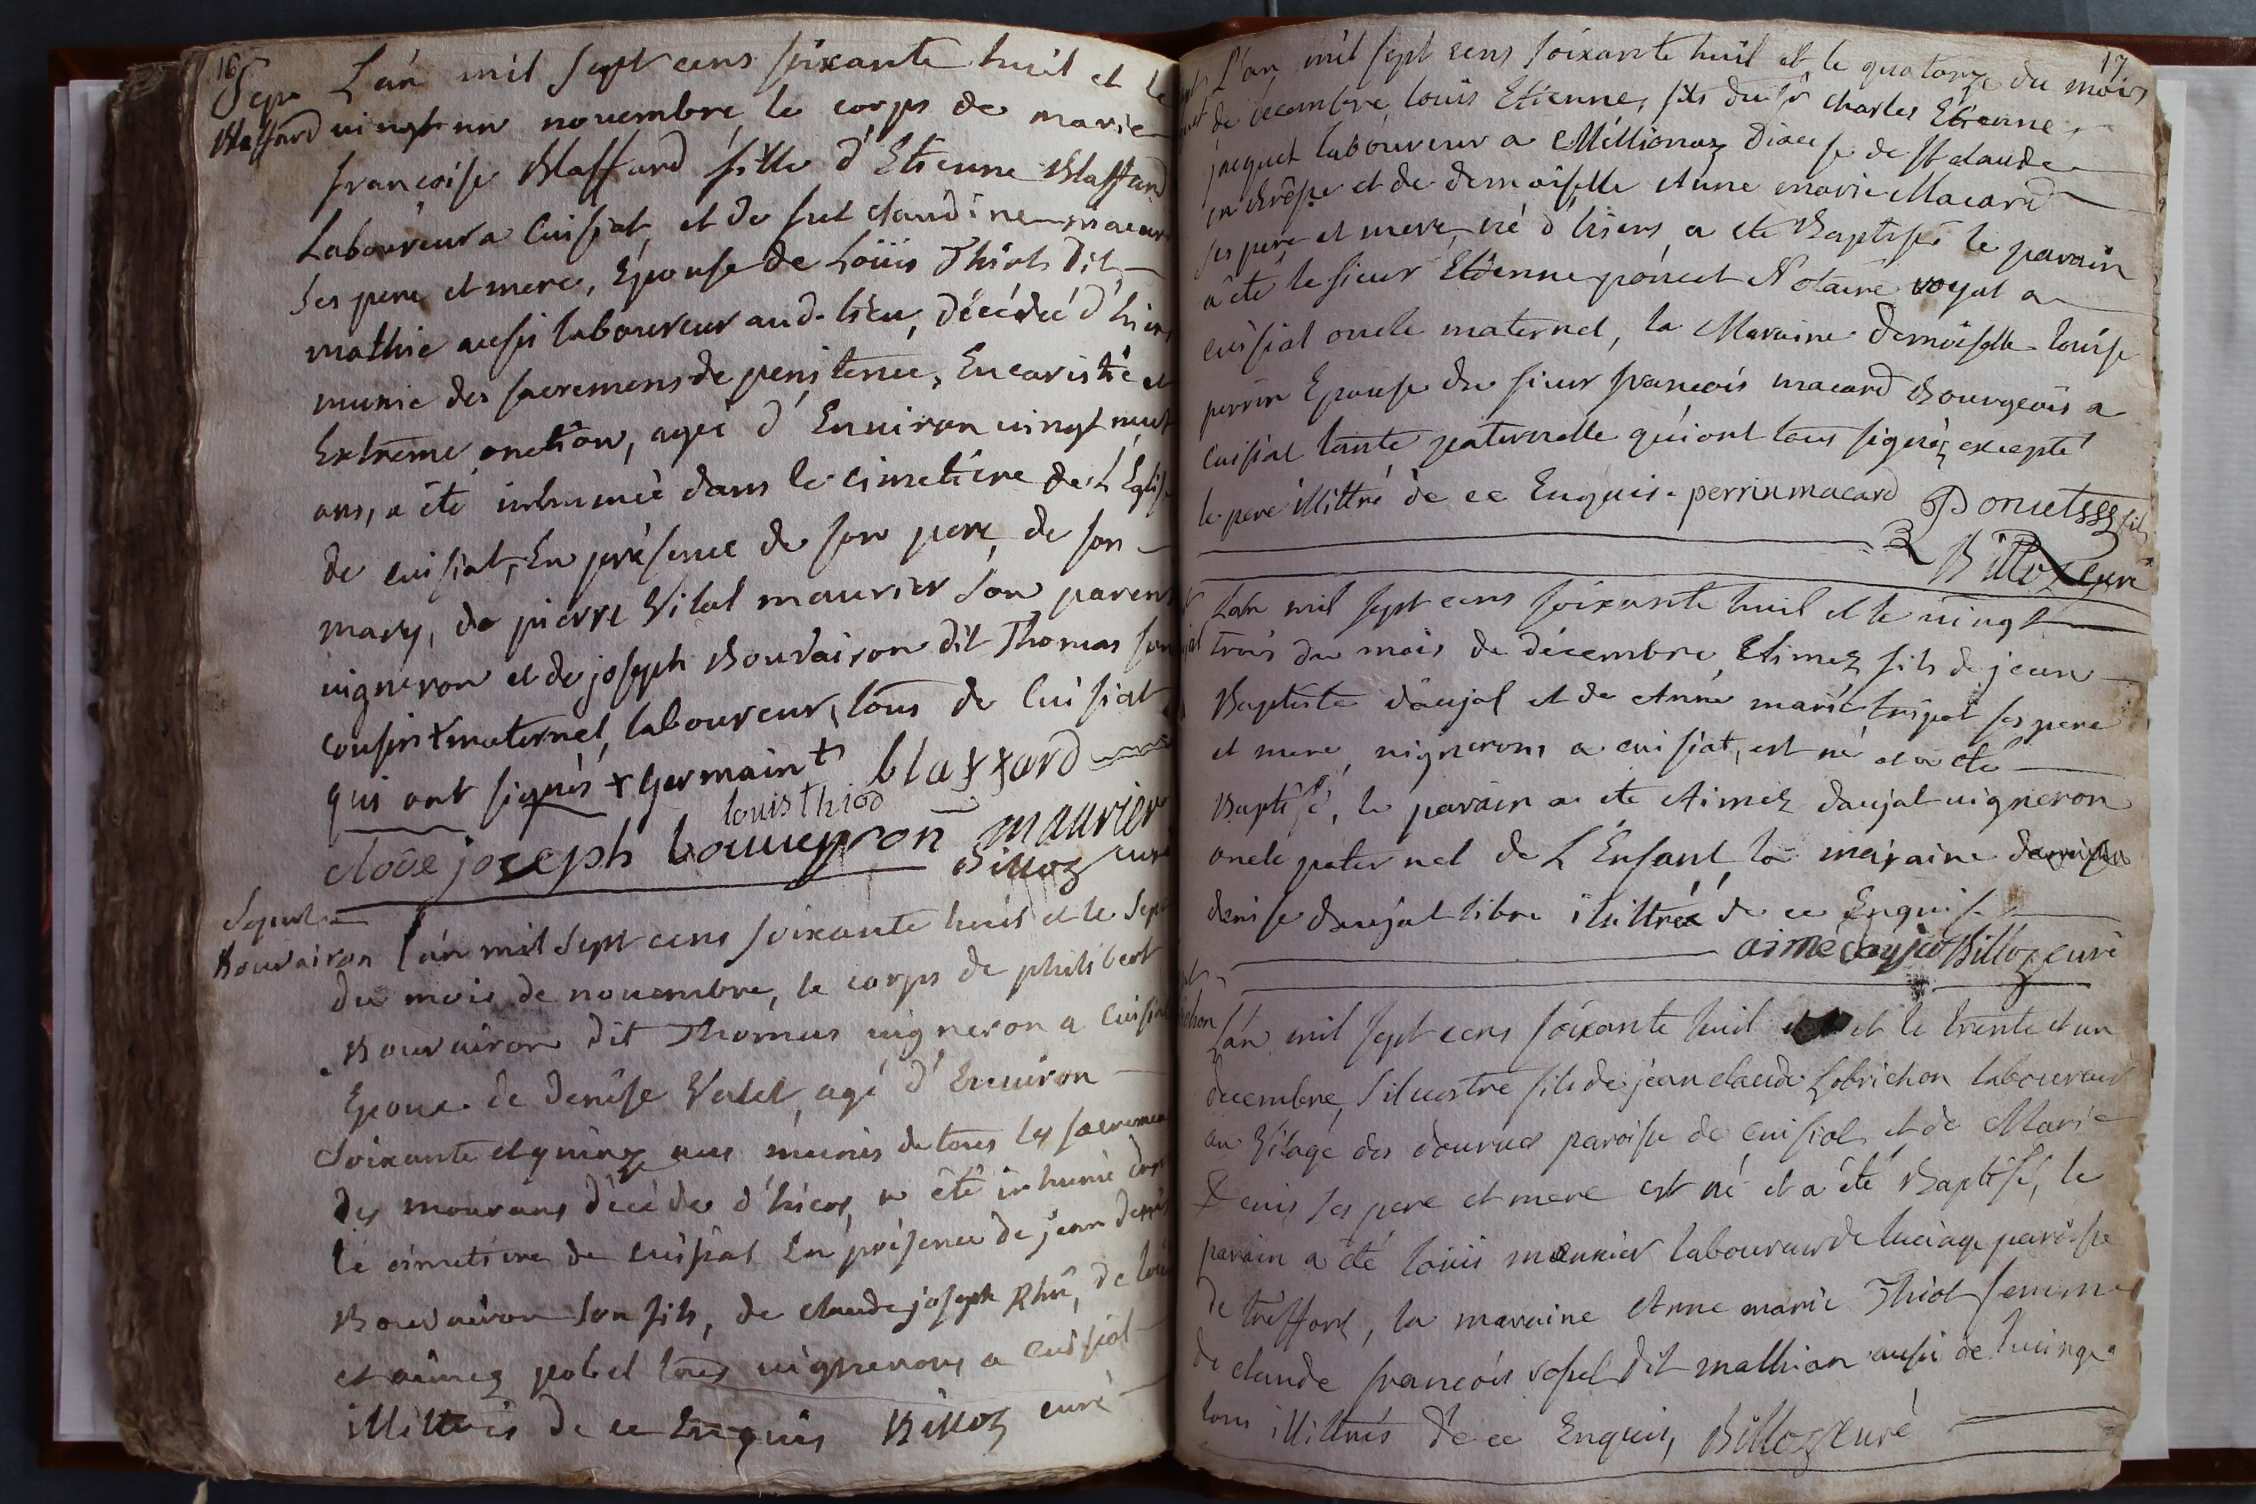 16
Sepu
Blaffard
L'an mil sept cens soixante huit et le
vingt un novembre le corps de marie
francoise Blaffard fille d'Etienne Blaffard
Laboureur a Cuisiat, et de fut claudine macard
Ses pere et mere, Epouse de Loüis Thiot dit
mathie aussi laboureur aud. lieu, décédée d'hiers
munie des sacremens de penitence, Eucaristie et
Extreme onction, agée d'Environ vingt neuf
ans, a été inhumée dans le cimetiere de L'Eglise
de cuisiat, En présence de son pere, de son
mary, de pierre Vital maurier son parent
vigneron et de joseph Bouvairon dit Thomas son
cousin + maternel, laboureur, tous de Cuisiat
qui ont signés + Germain +
blaffard
louis thiod
joseph bouveyron maurier
Billoz curé
Sepult
Bouvairon
L'an mil sept cens soixante huit et le sept
du mois de novembre, le corps de philibert
Bouvairon dit Thomas vigneron a Cuisiat
Epoux de Denise Valet, agé d'Environ
Soixante et quinz ans munis de tous les sacremen
des mourans décédé d'hiers, a été inhumé dans
le cimetiere de cuisiat En présence de jean denis
Bouvairon son fils, de claude joseph Rhu, de loui
et aimez pobel tous vignerons a cuisiat
illittrés de ce Enquis Billoz curé
17
L'an mil sept cens soixante huit et le quatorze du mois
de decembre, louis Etienne, fils du Sr charles Etienne
jacquet laboureur a Millionaz Diocese de St claude
en Bresse et de demoiselle Anne marie Macard
ses pere et mere, né d'hiers, a ete Baptisé, le parain
a été le sieur Etienne poncet Notaire royal a
cuisiat oncle maternel, la Maraine demoiselle louise
perrin Epouse du sieur francois macard Bourgeois a
cuisiat tante paternelle qui ont tous signés excepté
le pere illittré de ce Enquis. perrin macard Poncet fil
Billoz curé
L'an mil sept cens soixante huit et le vingt
trois du mois de décembre, Aimez fils de jean
Baptiste daujat et de Anne marie tripot ses pere
et mere, vignerons a cuisiat, est né et a ete
Baptisé, le parain a ete Aimez daujat vigneron
oncle paternel de L'Enfant, la maraine
denise daujat libre illittrée de ce Enquise
aimé daujat Billoz curé
L'an mil sept cens soixante huit et le trente et un
decembre, Silvestre fils de jean claude Lobrichon laboureur
au Vilage des dourves paroisse de cuisiat et de Marie
Denis ses pere et mere est né et a été Baptisé, le
parain a été louis meunier laboureur de lucinge paroisse
de treffort, la maraine Anne marie Thiot femme
de claude francois sopel dit mathian aussi de lucinge
tous illittrés de ce Enquis, Billoz curé